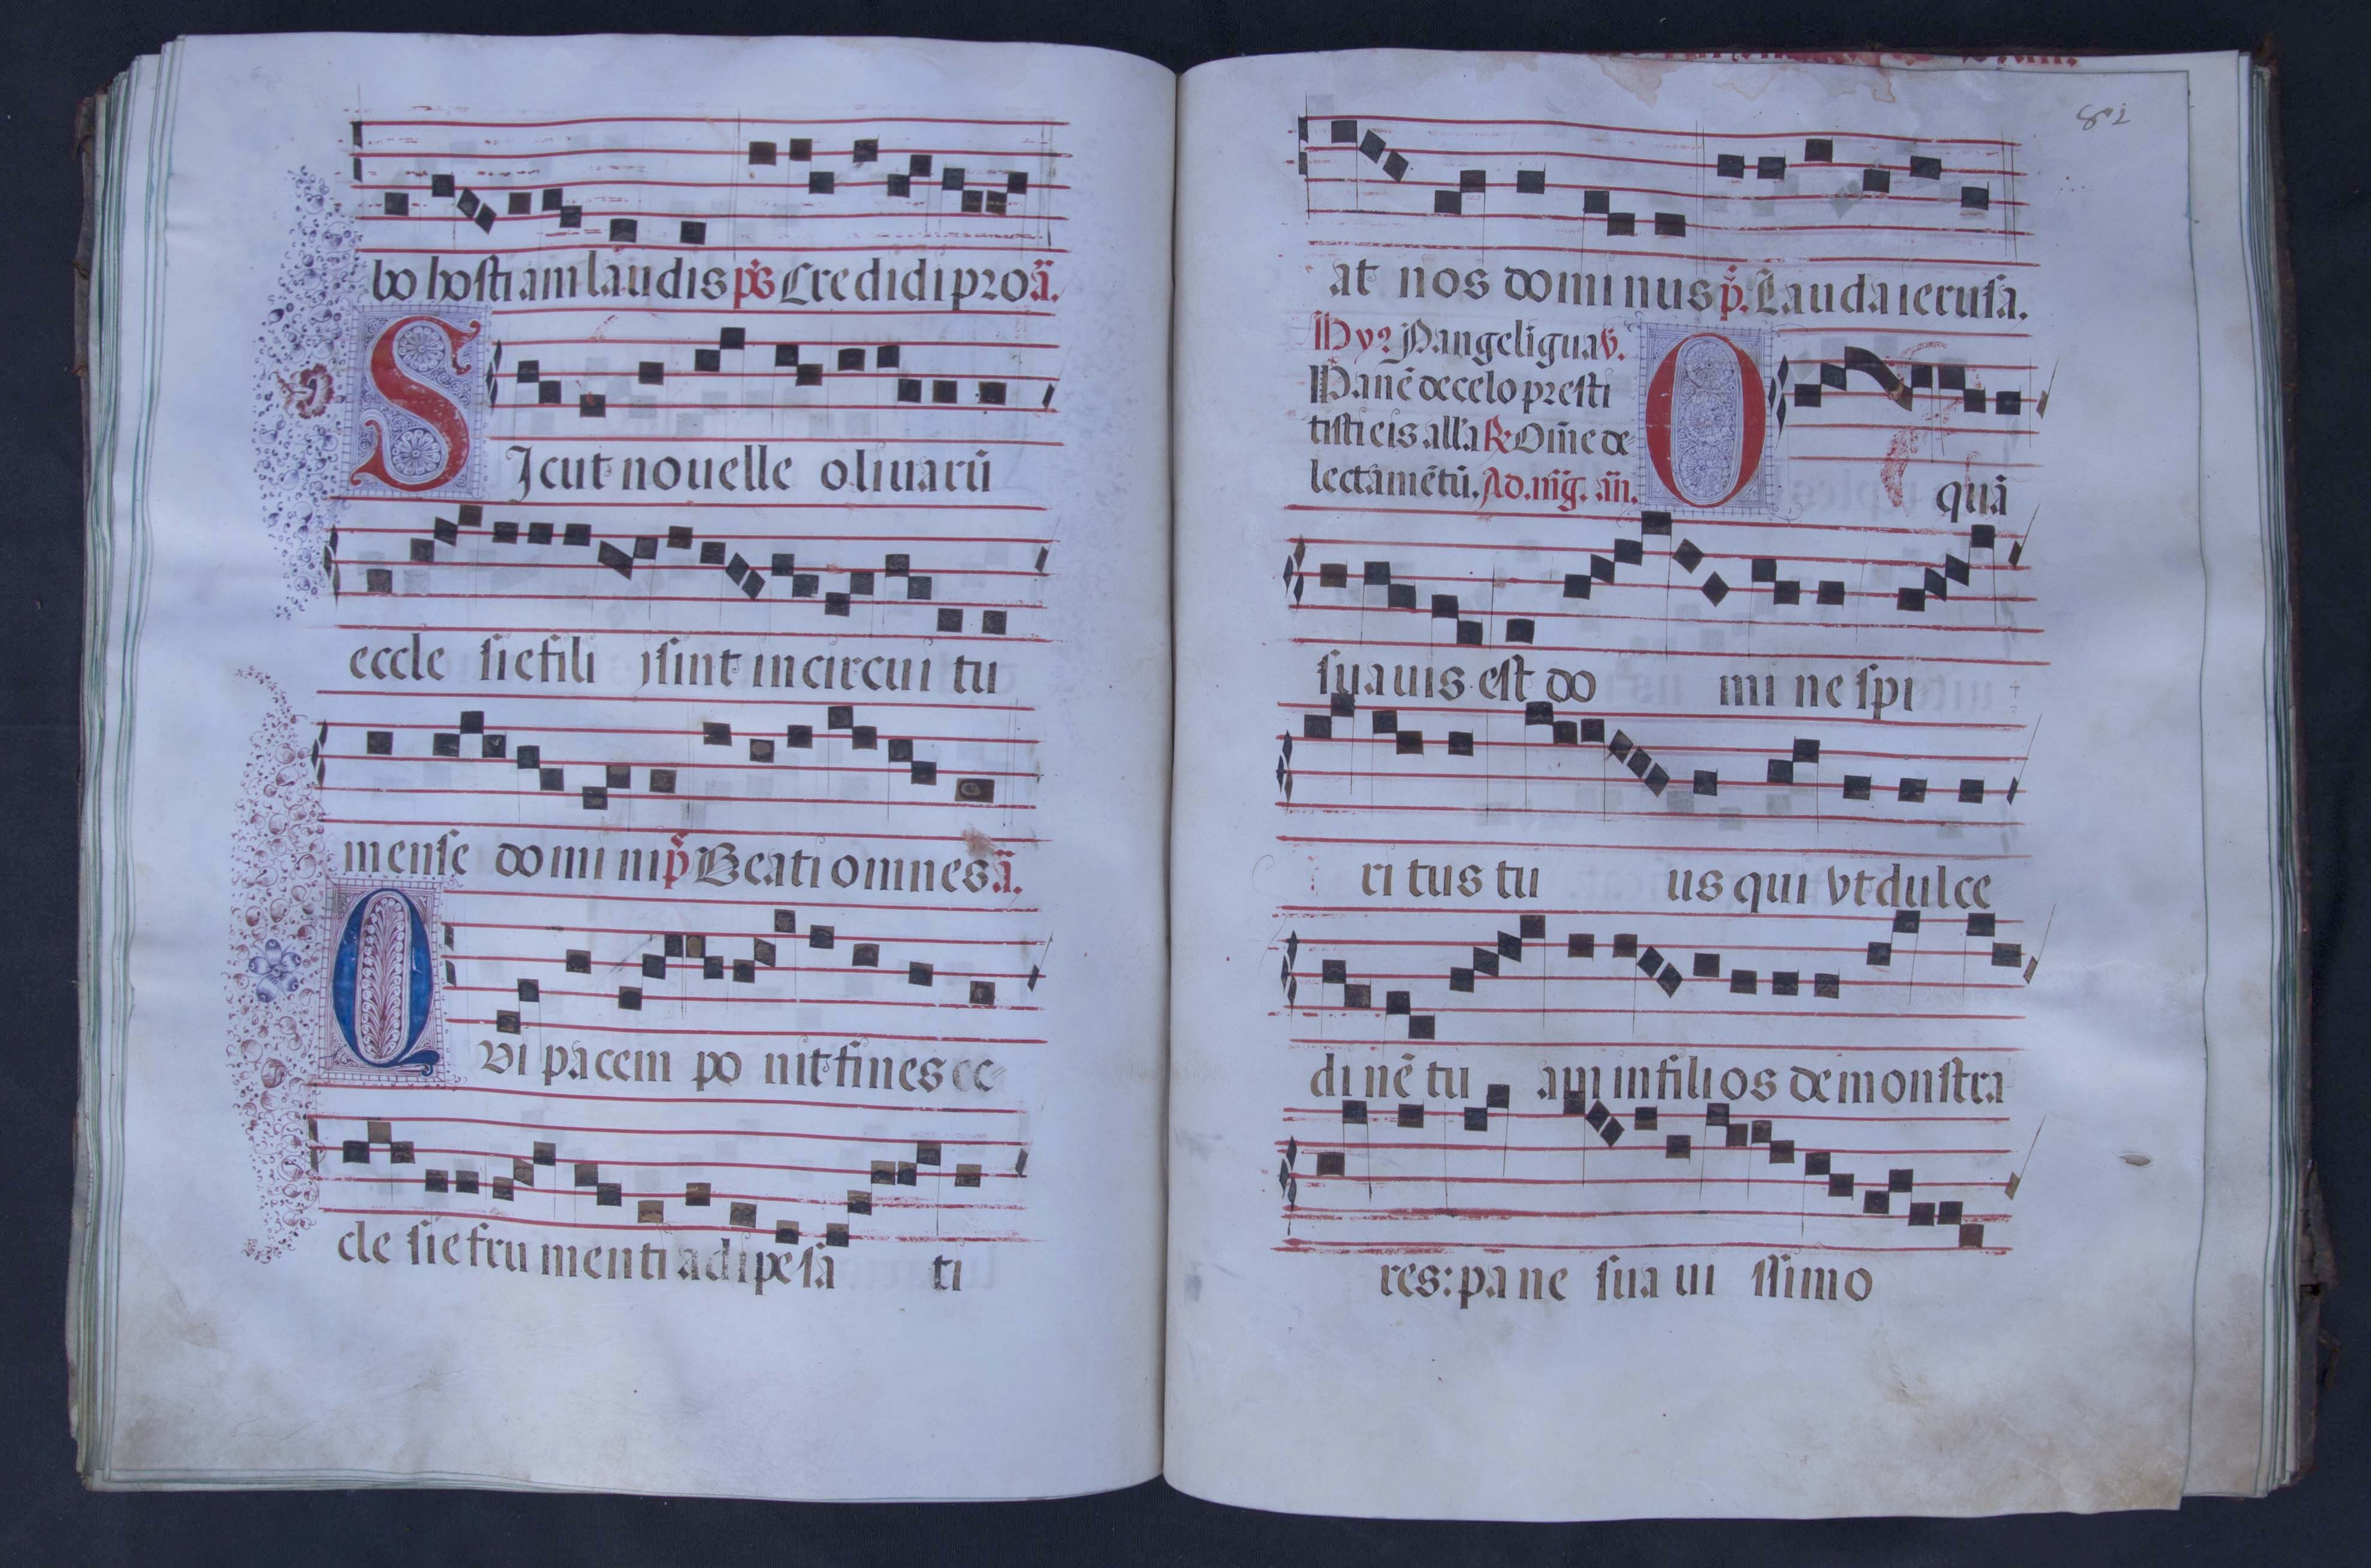 bo hostiam laudis ps̄ Credidi pro ā.
SIcut nouelle oliuarū
eccle sie fili j sint in circui tu
mense domini p̄ Beati omnes ā.
QVi pacem po nit fines ec
cle sie frumenti adipe sa ti
82
at nos dominus p̄. Lauda ierusa.
Hy? Pange ligua v.
Panē de celo presti
tisti eis all'a ℟ Oīne de
lectamētū. Ad. mīg. āñ.
O quā
suauis est do mi ne spi
ri tus tu us qui vt dulce
di nē tu am in filios demonstra
res: pa ne sua ui ssimo